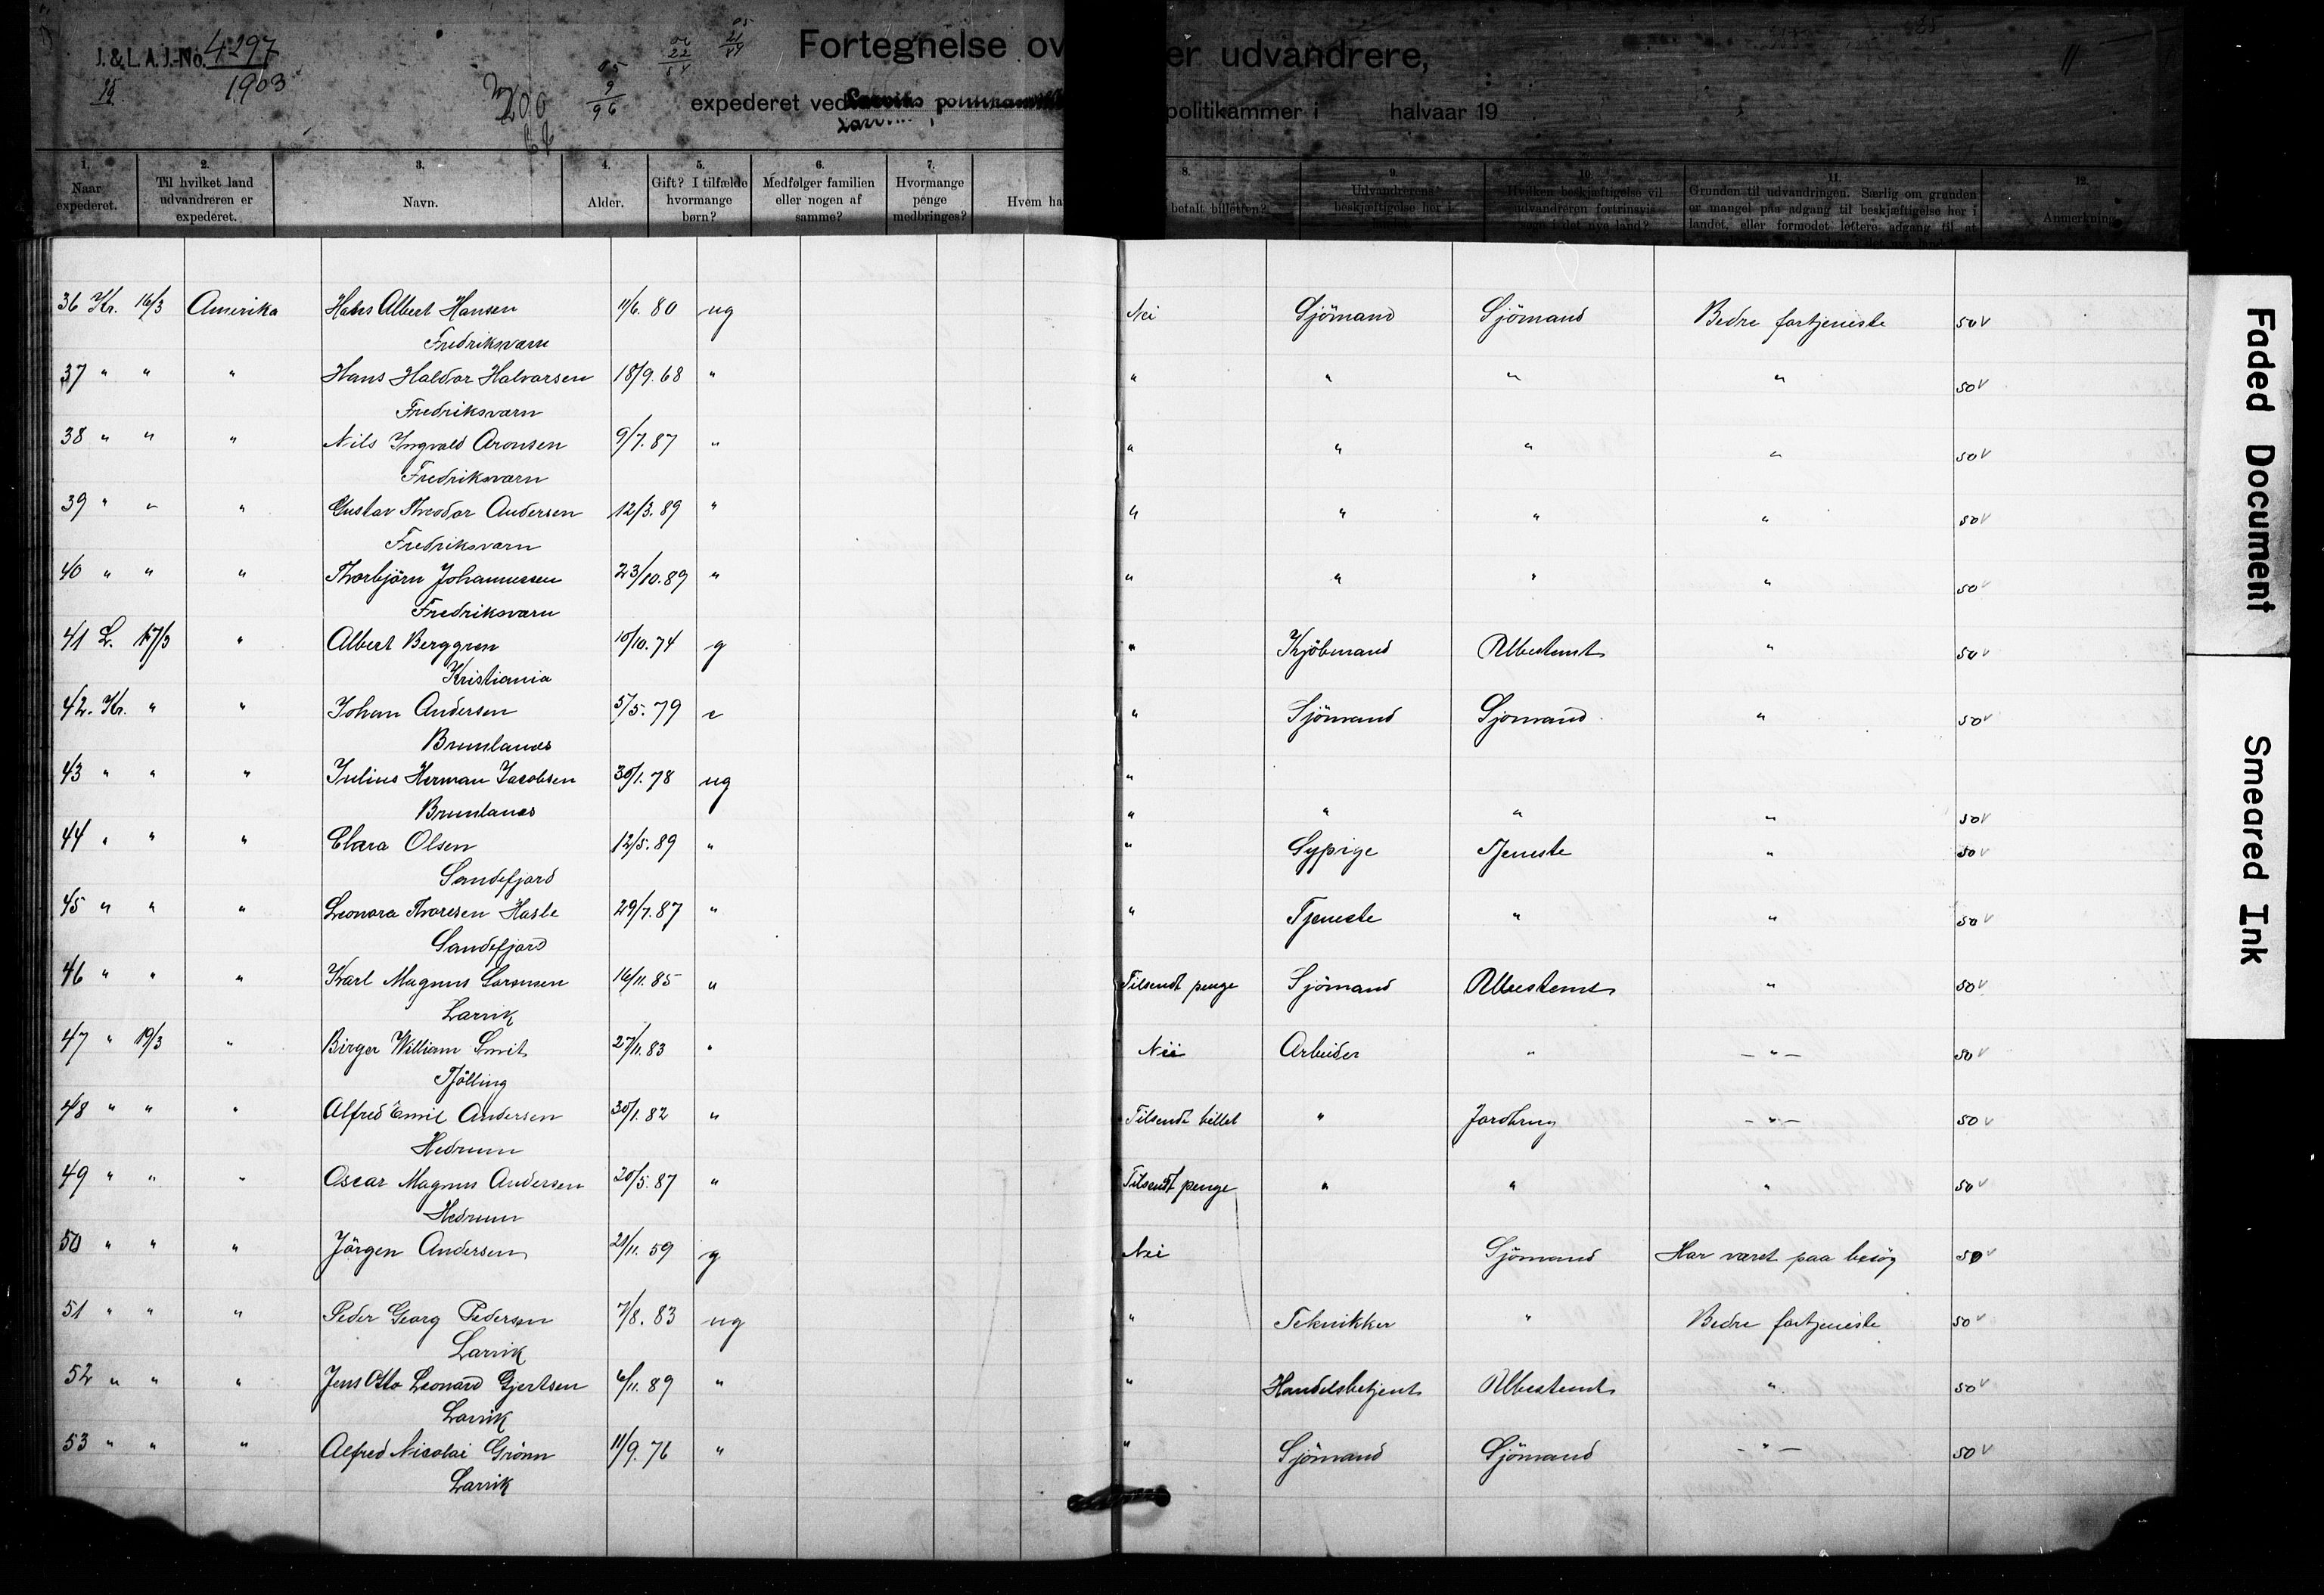 J. & L. A. J.-No. 4297
1903
Fortegnelse ov er udvandrere,
expederet ved politikammer i halvaar 19
1. Naar expederet.
2. Til hvilket land udvandreren er expederet.
3. Navn.
4. Alder.
5. Gift? I tilfælde hvormange børn?
6. Medfølger familien eller nogen af samme?
7. Hvormange penge medbringes?
8. Hvem ha betalt billetten?
9. Udvandrerens beskjæftigelse her i
10. Hvilken beskjæftigelse vil udvandreren fortrinsvis søge i det nye land?
11. Grunden til udvandringen. Særlig om grunden er mangel paa adgang til beskjæftigelse her i landet, eller formodet lettere adgang til at
12. Anmerkning.
36 Kr. 16/3 Amerika Hans Albert Hansen 11/6. 80 ug Nei Sjömand Sjömand Bedre fortjeneste 50 v
Fredriksværn
37 " " " Hans Haldor Halvorsen 18/9. 68 " " " " " 50 v
Fredriksværn
38 " " " Nils Ingvald Aronsen 9/7. 87 " " " " " 50 v
Fredriksværn
39 " " " Gustav Theodor Andersen 12/3. 89 " " " " " 50 v
Fredriksværn
40 " " " Thorbjörn Johannessen 23/10. 89 " " " " " 50 v
Fredriksværn
41 L. 17/3 " Albert Berggren 10/10. 74 g " Kjöbmand Ubestemt " 50 v
Kristiania
42. Kr. " " Johan Andersen 5/5. 79 " " Sjömand Sjomand " 50 v
Brunlanes
43 " " " Julius Herman Jacobsen 30/1. 78 ug "
Brunlanes " " " " 50 v
44 " " " Clara Olsen 12/5. 89 " " Sypige Tjeneste " 50 v
Sandefjord
45 " " " Leonora Thoresen Hasle 29/7. 87 " " Tjeneste " " 50 v
Sandefjord
46 " " " Karl Magnus Sorensen 16/11. 85 " Tilsendt penge Sjömand Ubestemt " 50 v
Larvik
47 " 19/3 " Birger William Smit 27/11. 83 " Nei Arbeider " — " — 50 v
Tjölling
48 " " " Alfred Emil Andersen 30/1. 82 " Tilsendt billet " Jordbrug — " — 50 v
Hedrum
49 " " " Oscar Magnus Andersen 20/5. 87 " Tilsendt penge " " " 50 v
Hedrum
50 " " " Jörgen Andersen 21/11. 59 g Nei Sjömand Har været paa besög 50 v
51 " " " Peder Georg Pedersen 7/8. 83 ug " Teknikker " Bedre fortjeneste 50 v
Larvik
52 " " " Jens Otto Leonard Gjertsen 6/11. 89 " " Handelsbetjent Ubestemt " 50 v
Larvik
53 " " " Alfred Nicolai Grönn 11/9. 76 " " Sjömand Sjömand — " — 50 v
Larvik
Faded Document
Smeared Ink